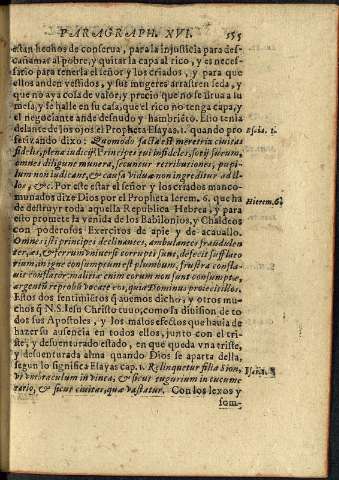 PARAGRAPH. XVI. 155
estan hechos de conserua, para la injusticia para des-
cañamar al pobre, y quitar la capa al rico, y es neces-
sario para tenerla el señor y los criados, y para que
ellos anden vestidos, y sus mugeres arrastren seda, y
que no aya cosa de valor, y precio que no se sirua a su
mesa, y se halle en su casa, que el rico no tenga capa, y
el negociante ande desnudo y hambriēto. Esto tenia
delante de los ojos el Propheta Esayas. 1. quando pro
Esaia. 1.
fetizando dixo: Quomodo facta est meretrix ciuitas
fidelis, plena iudicij? Principes tui infideles, socij furum,
omnes diligunt munera, sequuntur retributiones, pupil-
lum non iudicant, & causa viduæ non ingreditur ad il-
los, &c. Por este estar el señor y los criados manco-
munados dize Dios por el Propheta Ierem. 6. que ha
Hierem. 6.
de destruyr toda aquella Republica Hebrea, y para
esto promete la venida de los Babilonios, y Chaldeos
con poderosos Exercitos de apie y de acauallo.
Omnes isti principes declinantes, ambulantes fraudulen
ter, æs, & ferrum vniuersi corrupti sunt, defecit suffla to
rium, in igne consumptum est plumbum, frustra confla-
uit conflator: malitiæ enim eorum non sunt consumptæ,
argentū reprobū vocate eos, quia Dominus proiecit illos.
Estos dos sentimiētos q̄ auemos dicho, y otros mu-
chos q̄ N.S. Iesu Christo tuuo, como la diuision de to
dos sus Apostoles, y los malos efectos que hauia de
hazer su ausencia en todos ellos, junto con el tri-
ste, y desuenturado estado, en que queda vna triste,
y desuenturada alma quando Dios se aparta della,
segun lo significa Esayas cap. 1. Relinquetur filia Sion,
Isai. 1. 8
vt vmbraculum in vinea, & sicut tugurium in cucume
rario, & sicut ciuitas, quæ vastatur. Con los lexos y
som-